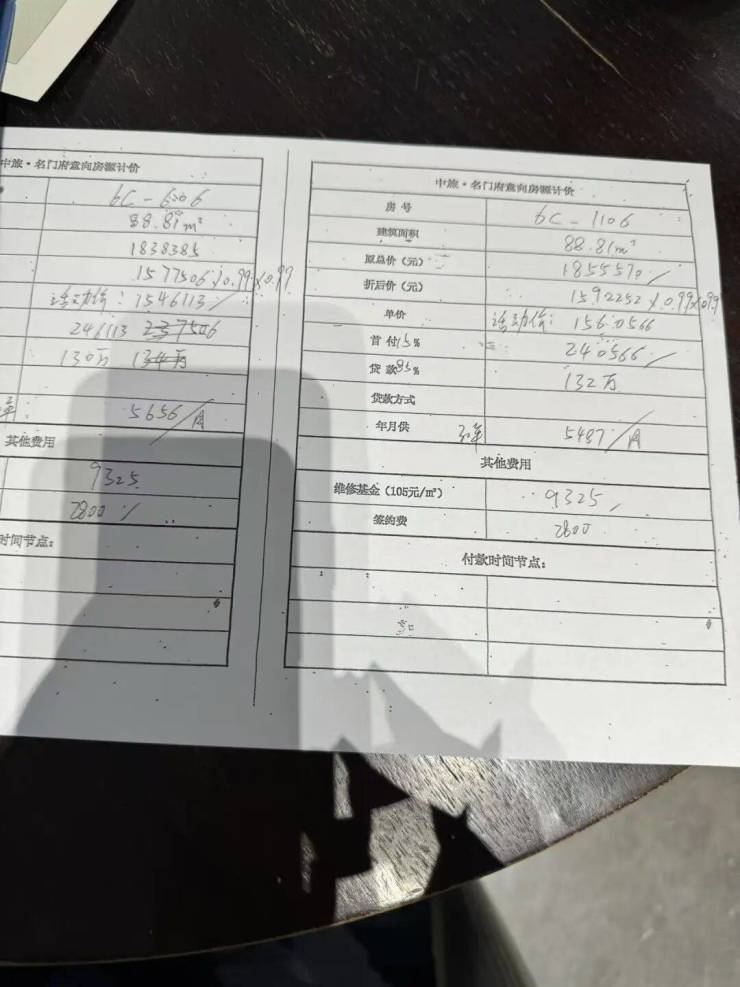 中旅·名门府意向房源计价
6C-606
88.81m²
1838385
1577506×0.99×0.99
活动价：1546113
246113 237506
130万 134万
5656/月
其他费用
9325
2800
时间节点：
中旅·名门府意向房源计价
房号 6C-1106
建筑面积 88.81m²
原总价（元） 1855570
折后价（元） 1592252×0.99×0.99
单价 活动价：1560566
首付15% 240566
贷款85% 132万
贷款方式
年月供 30年 5487/月
其他费用
维修基金（105元/㎡） 9325
签约费 2800
付款时间节点：